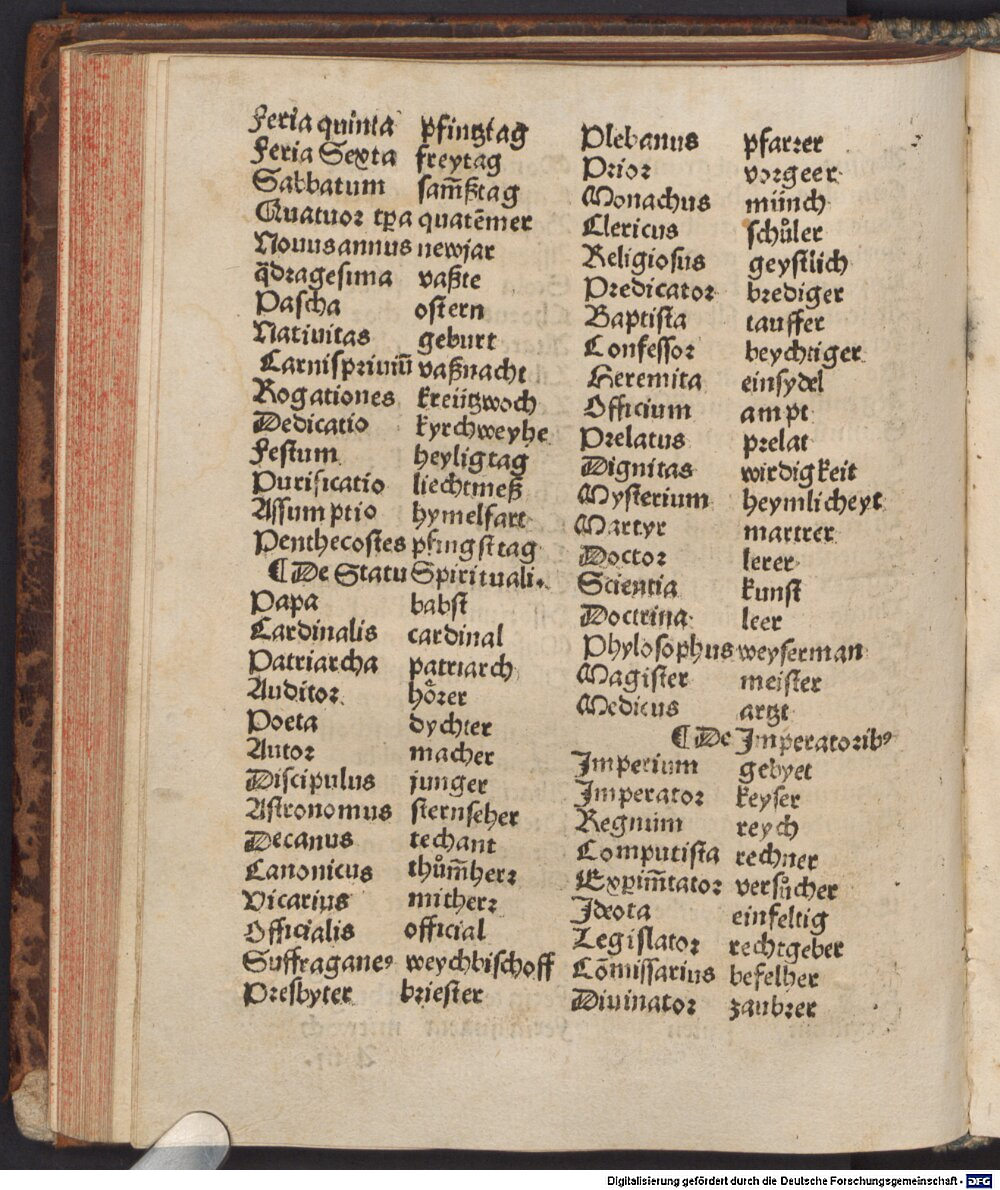 Feria quinta pfintztag
Feria Sexta freytag
Sabbatum sam̄ßtag
Quatuor tꝑa quatēmer
Nouus annus newjar
q̄dragesima vaßte
Pascha ostern
Natiuitas geburt
Carnispriuiū vaßnacht
Rogationes kreützwoch
Dedicatio kyrchweyhe
Festum heyligtag
Purificatio liechtmeß
Assumptio hymelfart
Penthecostes pfingsttag
¶ De Statu Spirituali.
Papa babst
Cardinalis cardinal
Patriarcha patriarch
Auditor hoͤrer
Poeta dychter
Autor macher
Discipulus junger
Astronomus sternseher
Decanus techant
Canonicus thům̄herr
Vicarius mitherr
Officialis official
Suffraganeꝰ weychbischoff
Presbyter briester
Plebanus pfarrer
Prior vorgeer
Monachus münch
Clericus schůler
Religiosus geystlich
Predicator brediger
Baptista tauffer
Confessor beychtiger
Heremita einsydel
Officium ampt
Prelatus prelat
Dignitas wirdigkeit
Mysterium heymlicheyt
Martyr martrer
Doctor lerer
Scientia kunst
Doctrina leer
Phylosophus weyserman
Magister meister
Medicus artzt
¶ De Imperatoribꝰ
Imperium gebyet
Imperator keyser
Regnum reych
Computista rechner
Exꝑim̄tator versůcher
Ideota einfeltig
Legislator rechtgeber
Cōmissarius befelher
Diuinator zaubrer
Digitalisierung gefördert durch die Deutsche Forschungsgemeinschaft - DFG